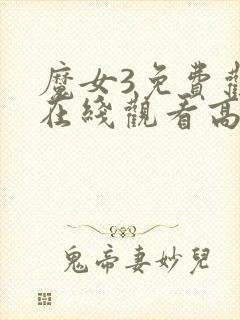 魔女3免費觀
在綫觀看高
鬼帝妻妙兒